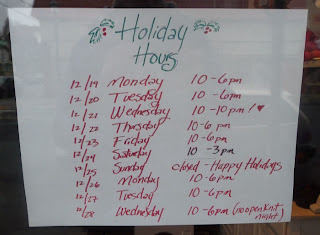 Holiday
Hours
12/19 Monday 10-6pm
12/20 Tuesday 10-6pm
12/21 Wednesday 10-10pm! ♥
12/22 Thursday 10-6pm
12/23 Friday 10-6pm
12/24 Saturday 10-3pm
12/25 Sunday closed-Happy Holidays
12/26 Monday 10-6pm
12/27 Tuesday 10-6pm
12/28 Wednesday 10-6pm (no open knit
night)